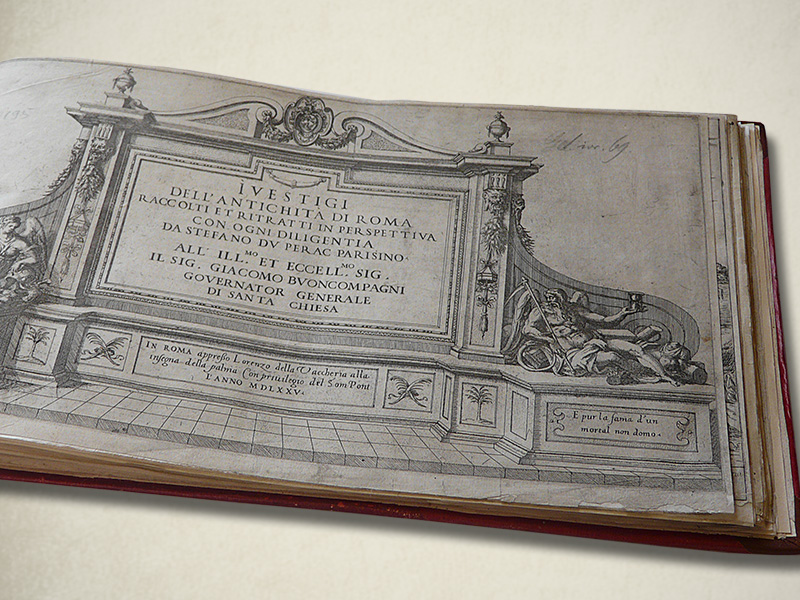 I VESTIGI
DELL'ANTICHITÀ DI ROMA
RACCOLTI ET RITRATTI IN PERSPETTIVA
CON OGNI DILIGENTIA
DA STEFANO DV PERAC PARISINO.
ALL' ILL.MO ET ECCELL.MO SIG.
IL SIG. GIACOMO BVONCOMPAGNI
GOVERNATOR GENERALE
DI SANTA CHIESA
IN ROMA appresso Lorenzo della Vaccheria alla
insegna della palma Con priuilegio del Som Pont
L'ANNO MDLXXV.
E pur la fama d'un
mortal non domo.